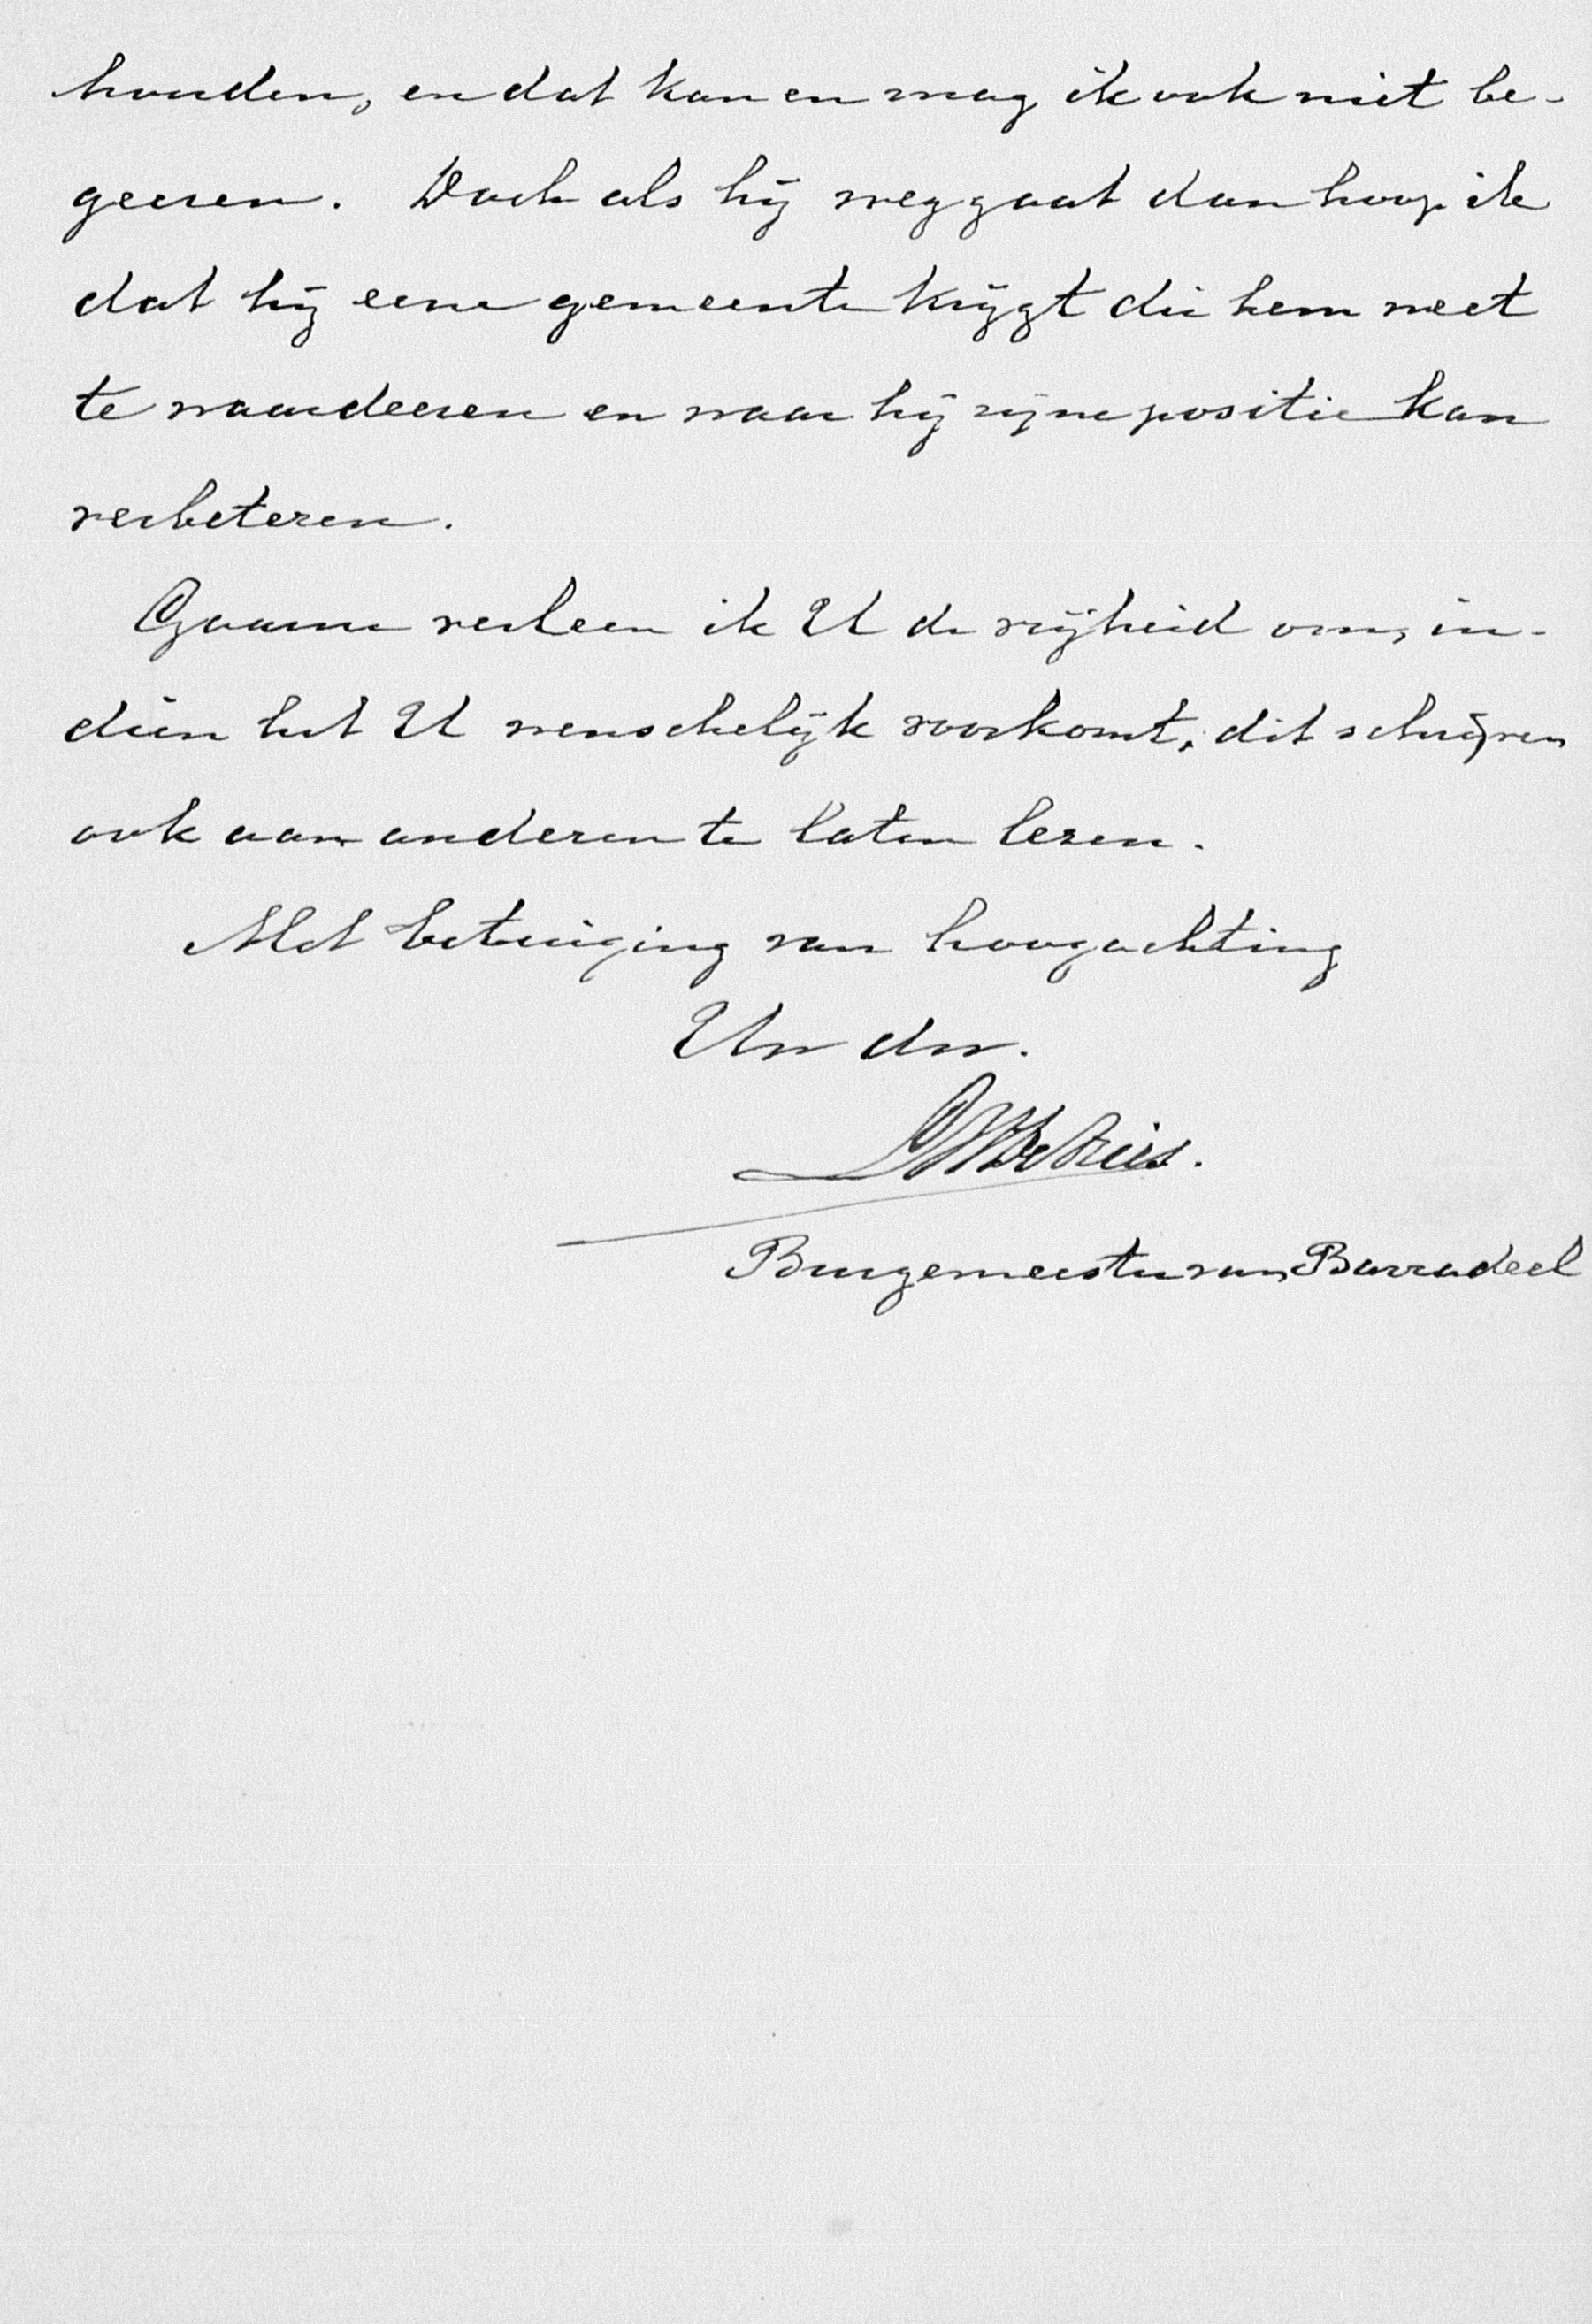 houden, en dat kan en mag ik ook niet be-
geeren. Doch als hij weggaat dan hoop ik
dat hij eene gemeente krijgt die hem weet
te waardeeren en waar hij zijne positie kan
verbeteren.
Gaarne verleen ik U de vrijheid om, in-
dien het U wenschelijk voorkomt, dit schrijven
ook aan anderen te laten lezen.
Met betuiging van hoogachting
Uw dw.
Burgemeester van Barradeel